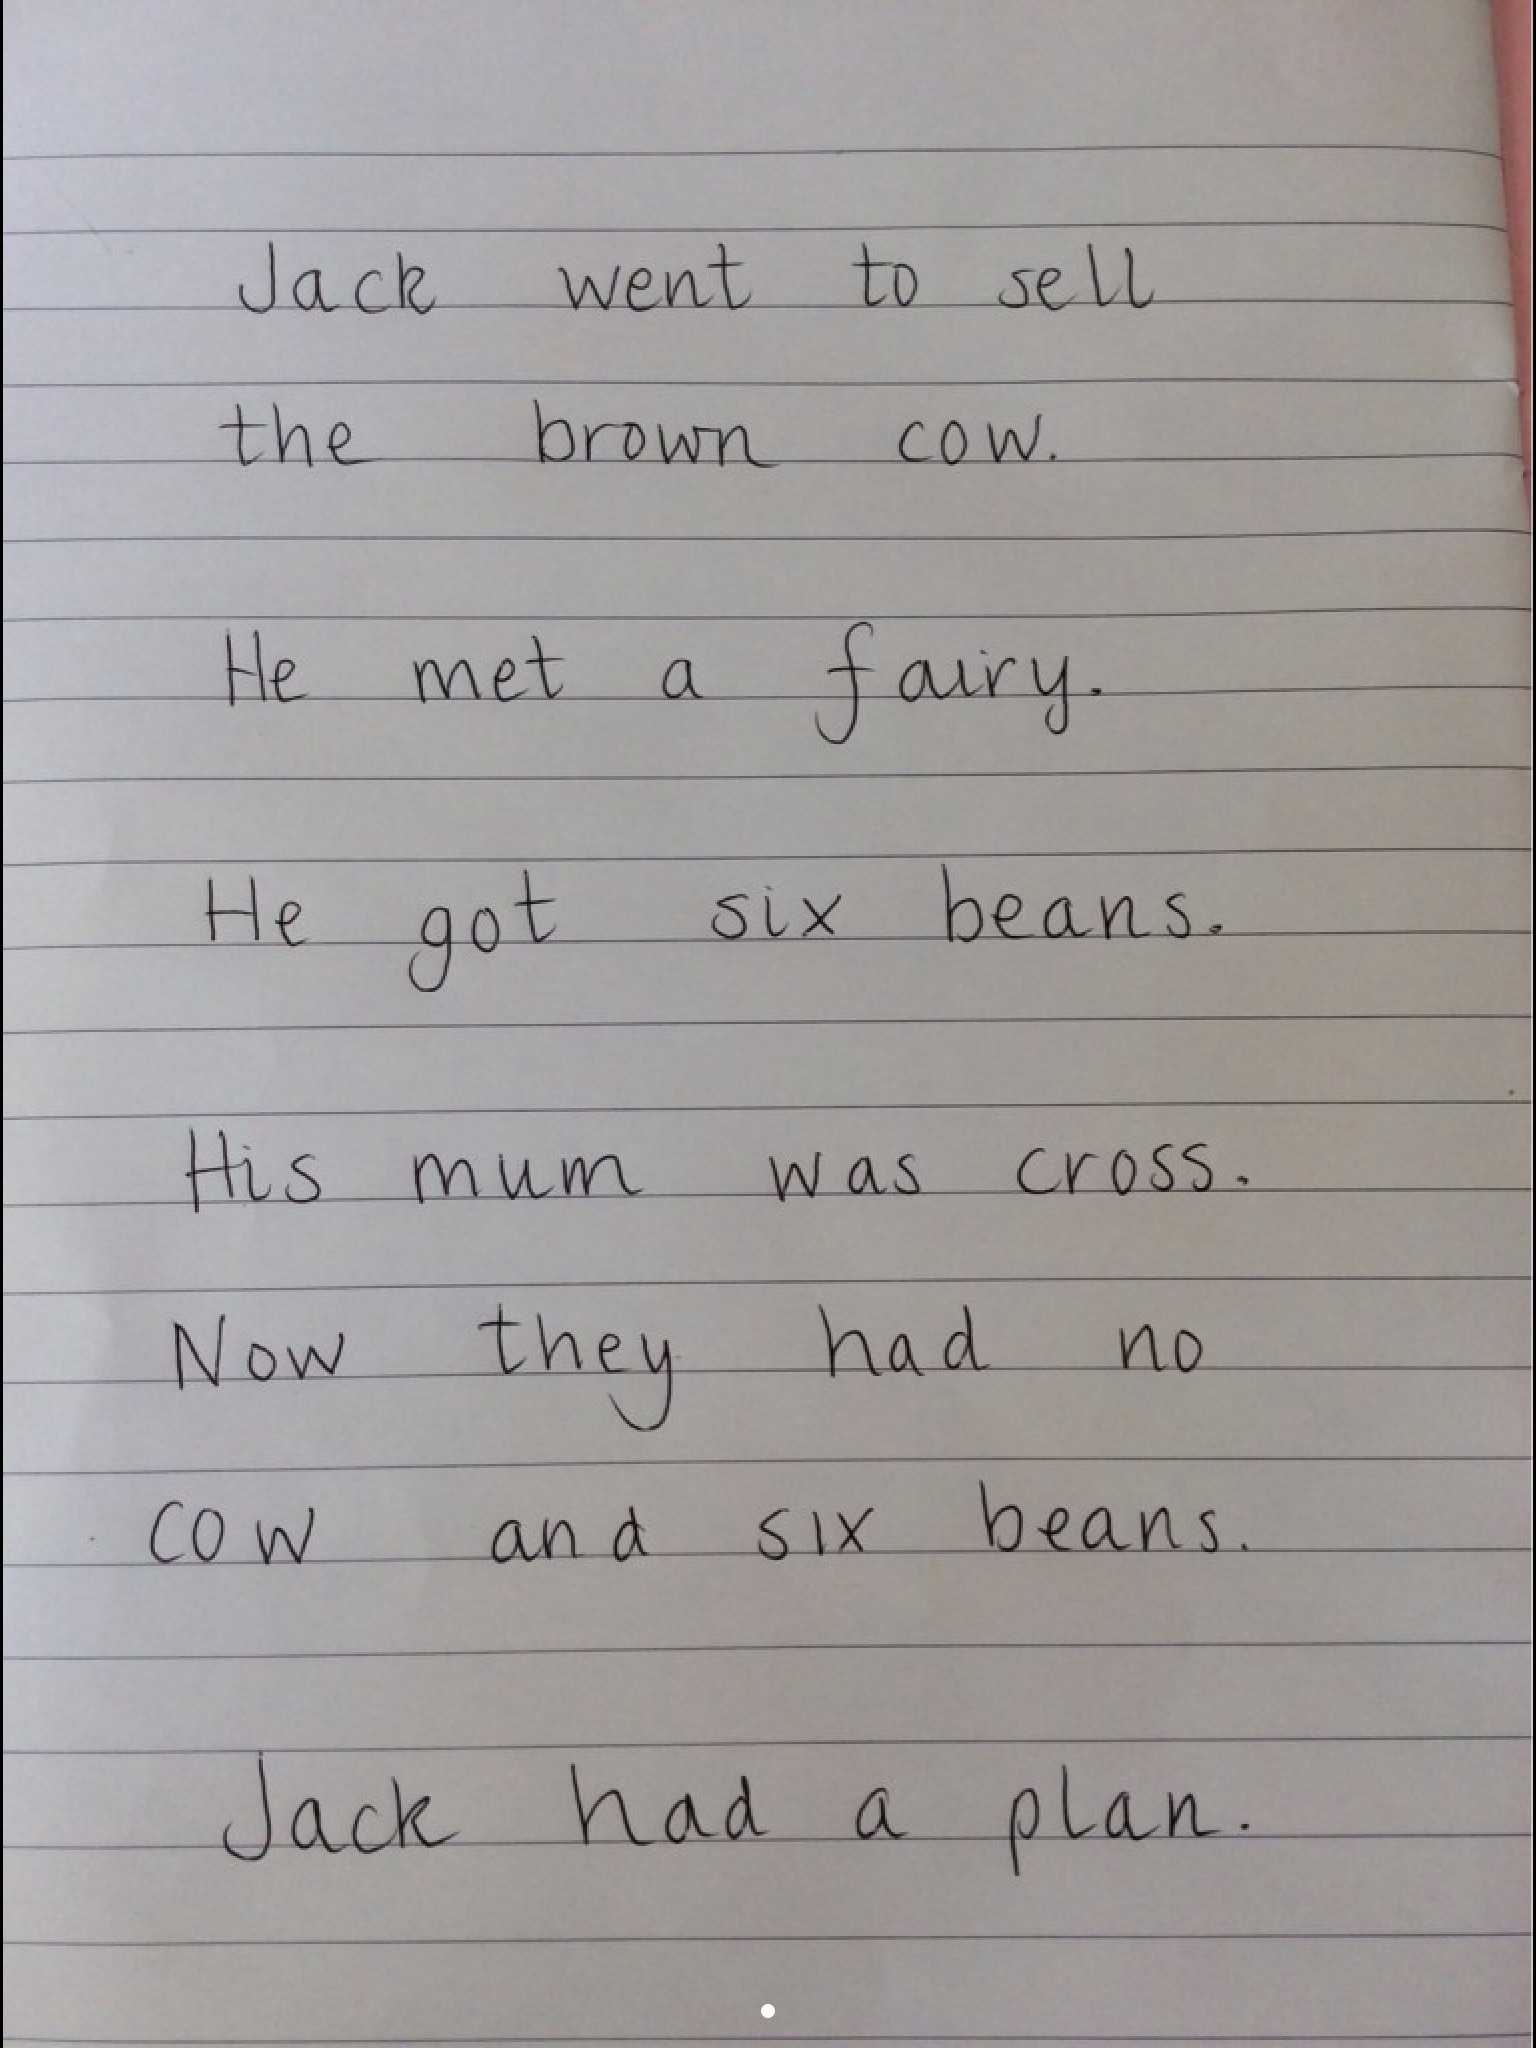 Jack went to sell
the brown cow.
He met a fairy.
He got six beans.
His mum was cross.
Now they had no
cow and six beans.
Jack had a plan.